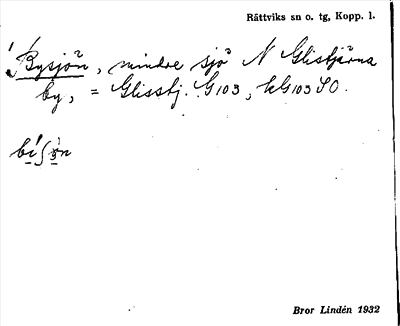 Rättviks sn o. tg, Kopp. l.
Bysjön, mindre sjö N Glistjärna
by, = Glisstj. G103, kG103 SO.
Bror Lindén 1932